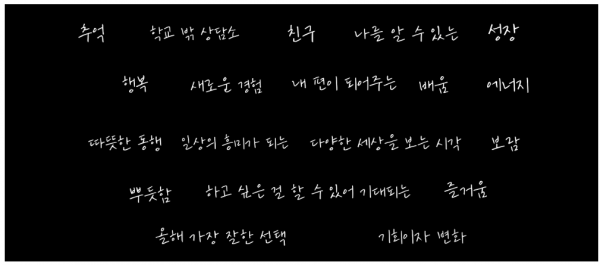 추억 학교 밖 상담소 친구 나를 알 수 있는 성장
행복 새로운 경험 내 편이 되어주는 배움 에너지
따뜻한 동행 일상의 흥미가 되는 다양한 세상을 보는 시각 보람
뿌듯함 하고 싶은 걸 할 수 있어 기대되는 즐거움
올해 가장 잘한 선택 기회이자 변화